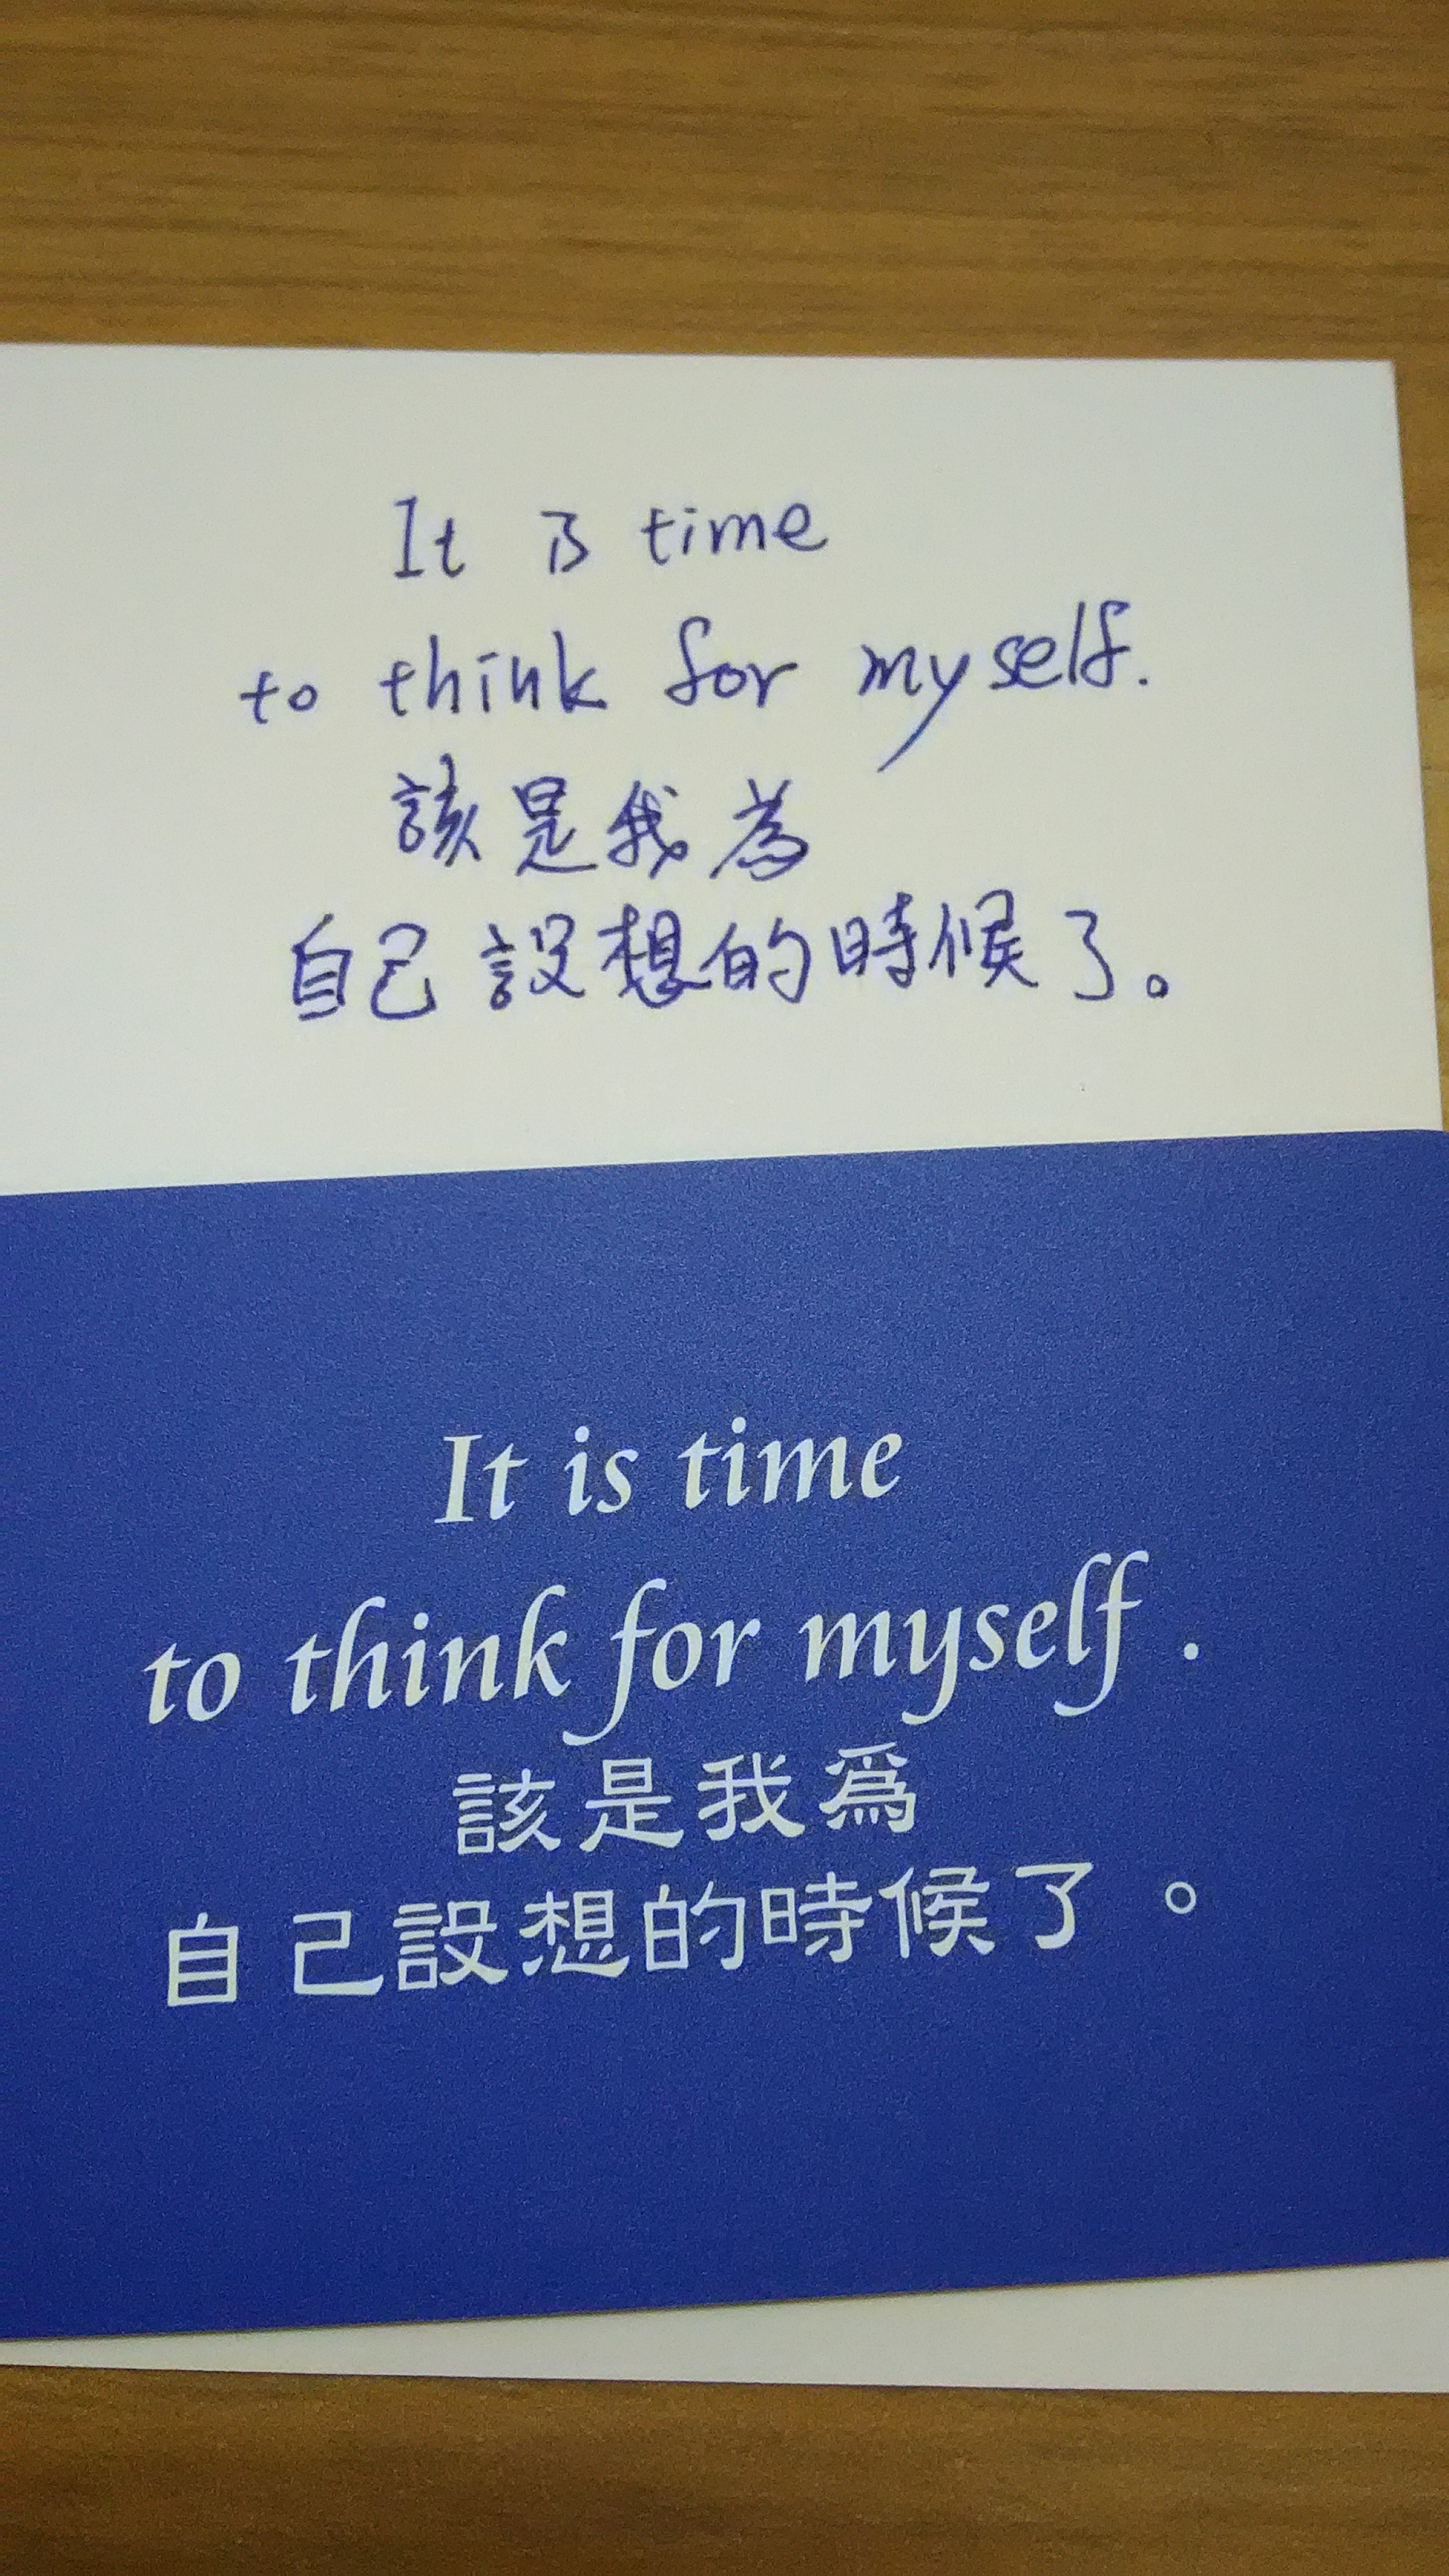 It is time
to think for myself.
該是我為
自己設想的時候了。
It is time
to think for myself .
該是我爲
自己設想的時候了 。